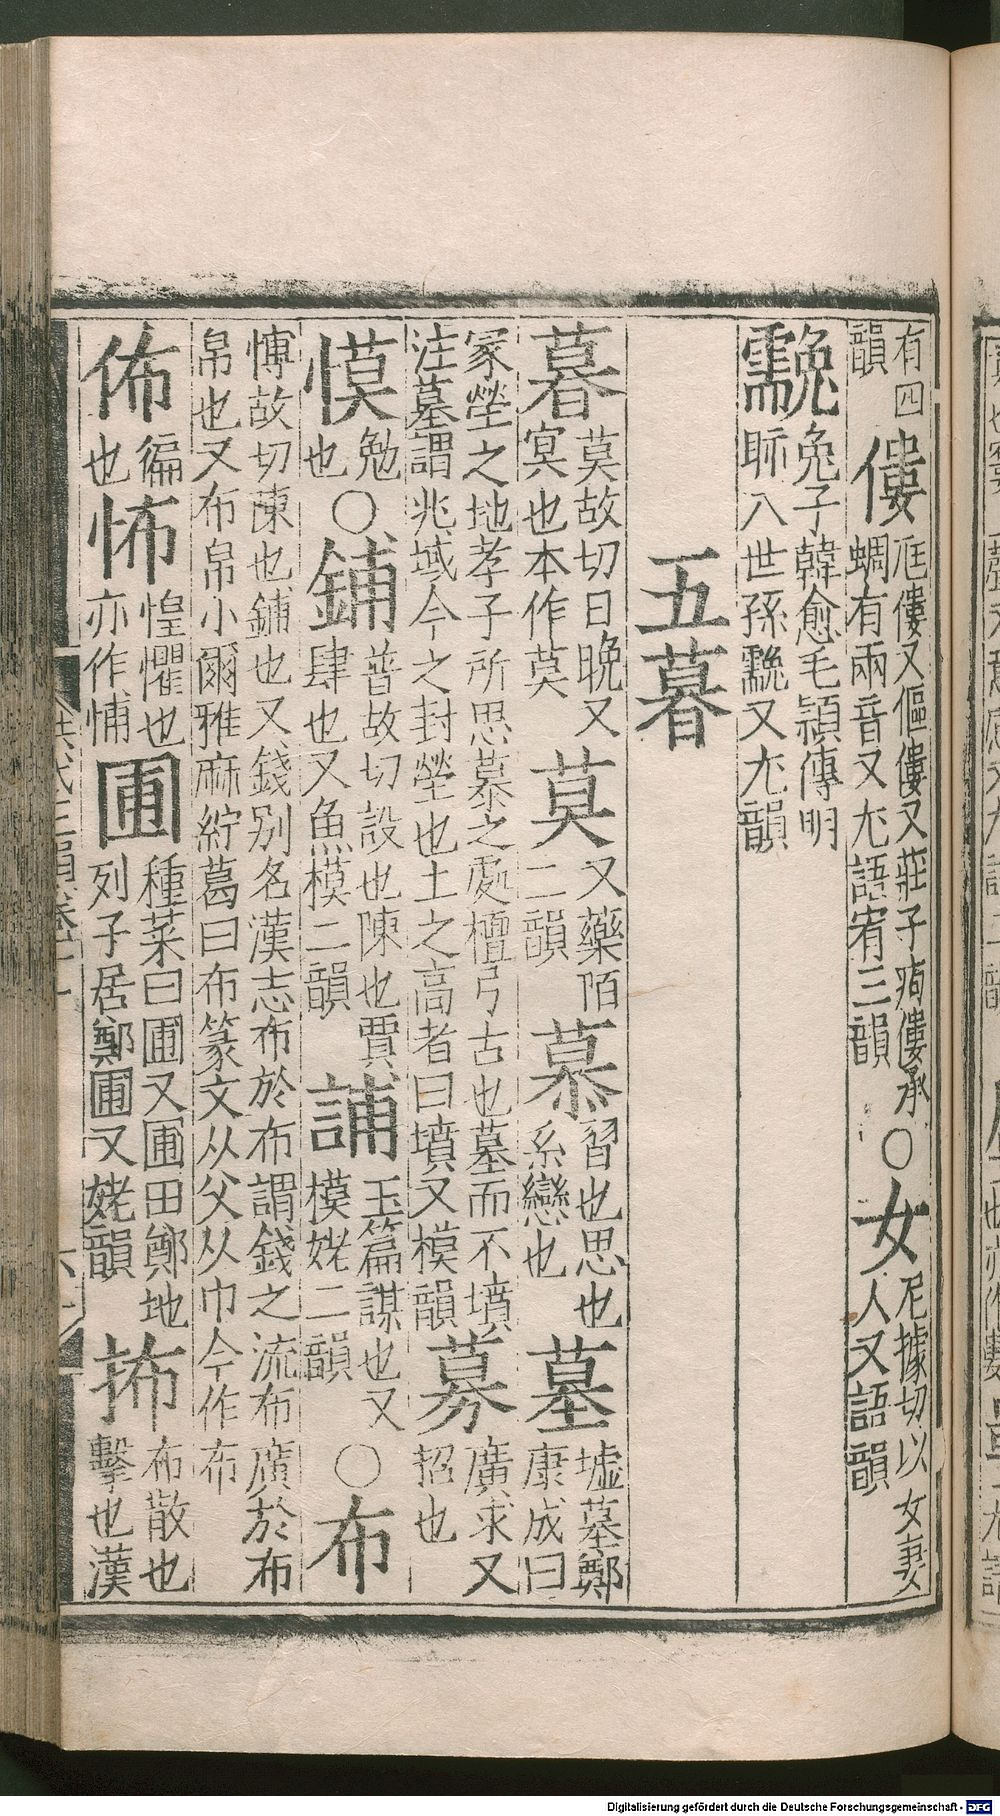 有四韻 僂 尫僂又傴僂又莊子痀僂承蜩有兩音又尤語宥三韻 ○ 女 尼據切以女妻人又語韻
䨲 兔子韓愈毛頴傳明眎八世孫䨲又尤韻
五暮
暮 莫故切日晚又冥也本作莫 莫 又藥陌二韻 慕 習也思也系戀也 墓 墟墓鄭康成曰
冢塋之地孝子所思慕之處檀弓古也墓而不墳注墓謂兆域今之封塋也土之高者曰墳又模韻 募 廣求又招也
慔 勉也 ○ 鋪 普故切設也陳也賈肆也又魚模二韻 誧 玉篇謀也又模姥二韻 ○ 布
博故切陳也鋪也又錢别名漢志布於布謂錢之流布廣於布帛也又布帛小爾雅麻紵葛曰布篆文从父从巾今作布
佈 徧也 怖 惶懼也亦作悑 圃 種菜曰圃又圃田鄭地列子居鄭圃又姥韻 抪 布散也擊也漢
Digitalisierung gefördert durch die Deutsche Forschungsgemeinschaft - DFG